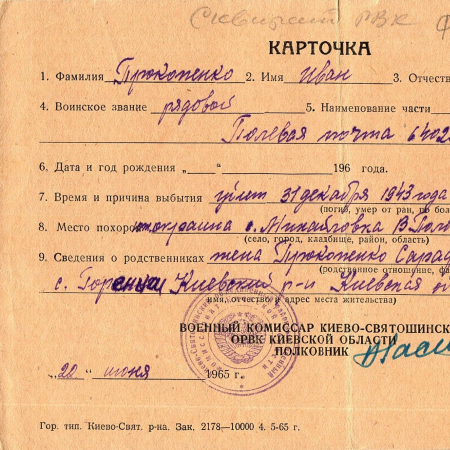 Сквирский РВК
КАРТОЧКА
1. Фамилия Прокопенко 2. Имя Иван 3. Отчест
4. Воинское звание рядовой 5. Наименование части
Полевая почта 6402
6. Дата и год рождения „ “ 196 года.
7. Время и причина выбытия убит 31 декабря 1943 года
(погиб, умер от ран, по бол
8. Место похоро с. Михайловка
(село, город, кладбище, район, область)
9. Сведения о родственниках жена Прокопенко
(родственное отношение, фа
с. Горенки Киевский р-н Киевская
имя, отчество и адрес места жительства)
ВОЕННЫЙ КОМИССАР КИЕВО-СВЯТОШИНСК
ОРВК КИЕВСКОЙ ОБЛАСТИ
ПОЛКОВНИК
„20“ июня 1965 г.
Гор. тип. Киево-Свят. р-на. Зак. 2178—10000 4. 5-65 г.